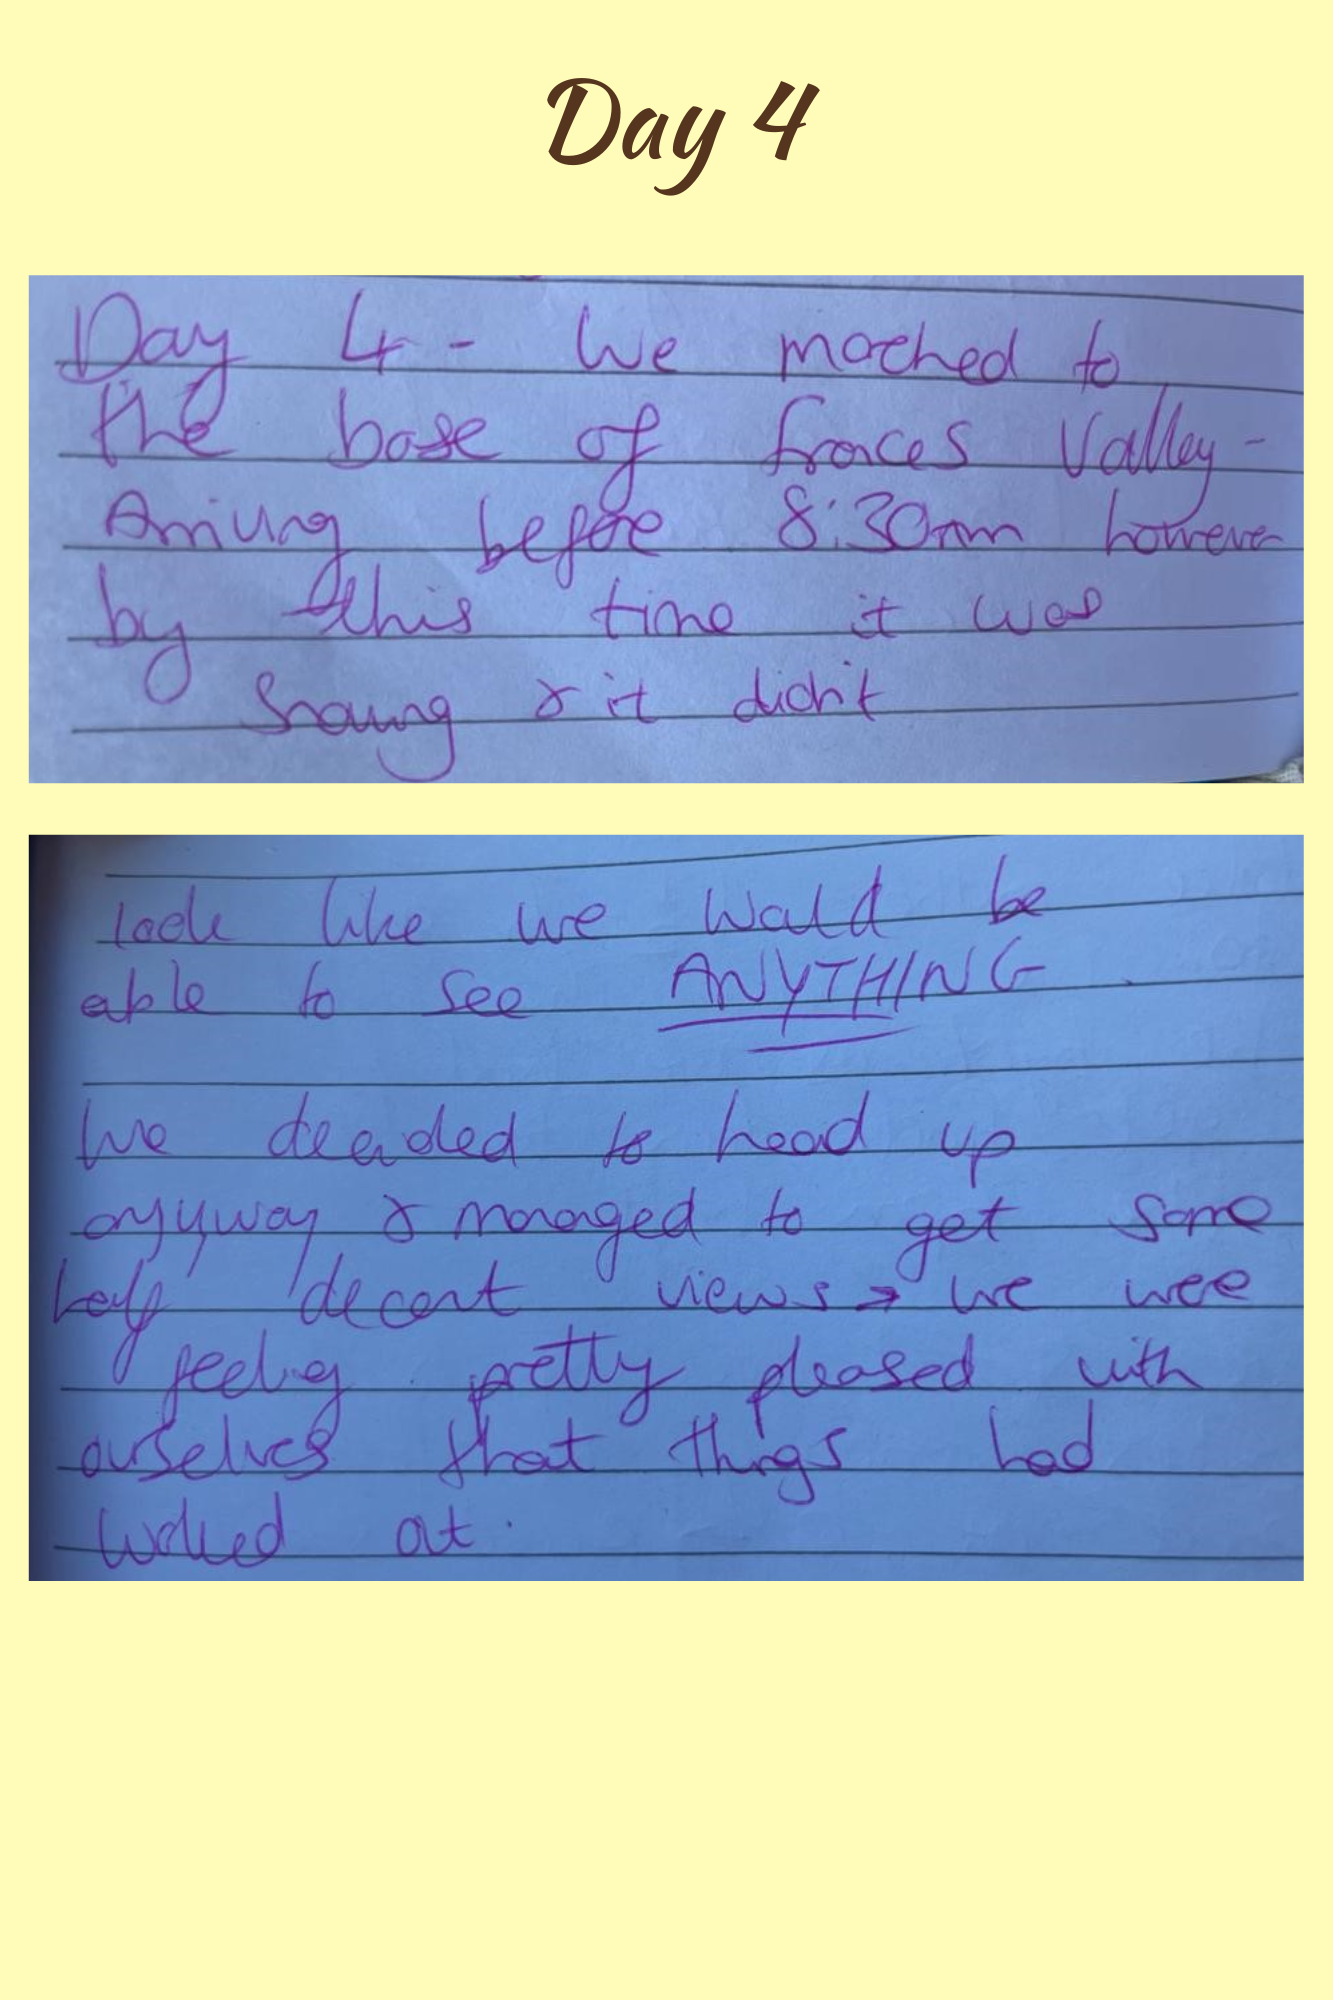 Day 4
Day 4 - We marched to
the base of frances Valley -
Arriving before 8:30am however
by this time it was
Snowing & it didn't
look like we would be
able to see ANYTHING
We decided to head up
anyway & managed to get some
half decent views → we were
feeling pretty pleased with
ourselves that things had
worked out.